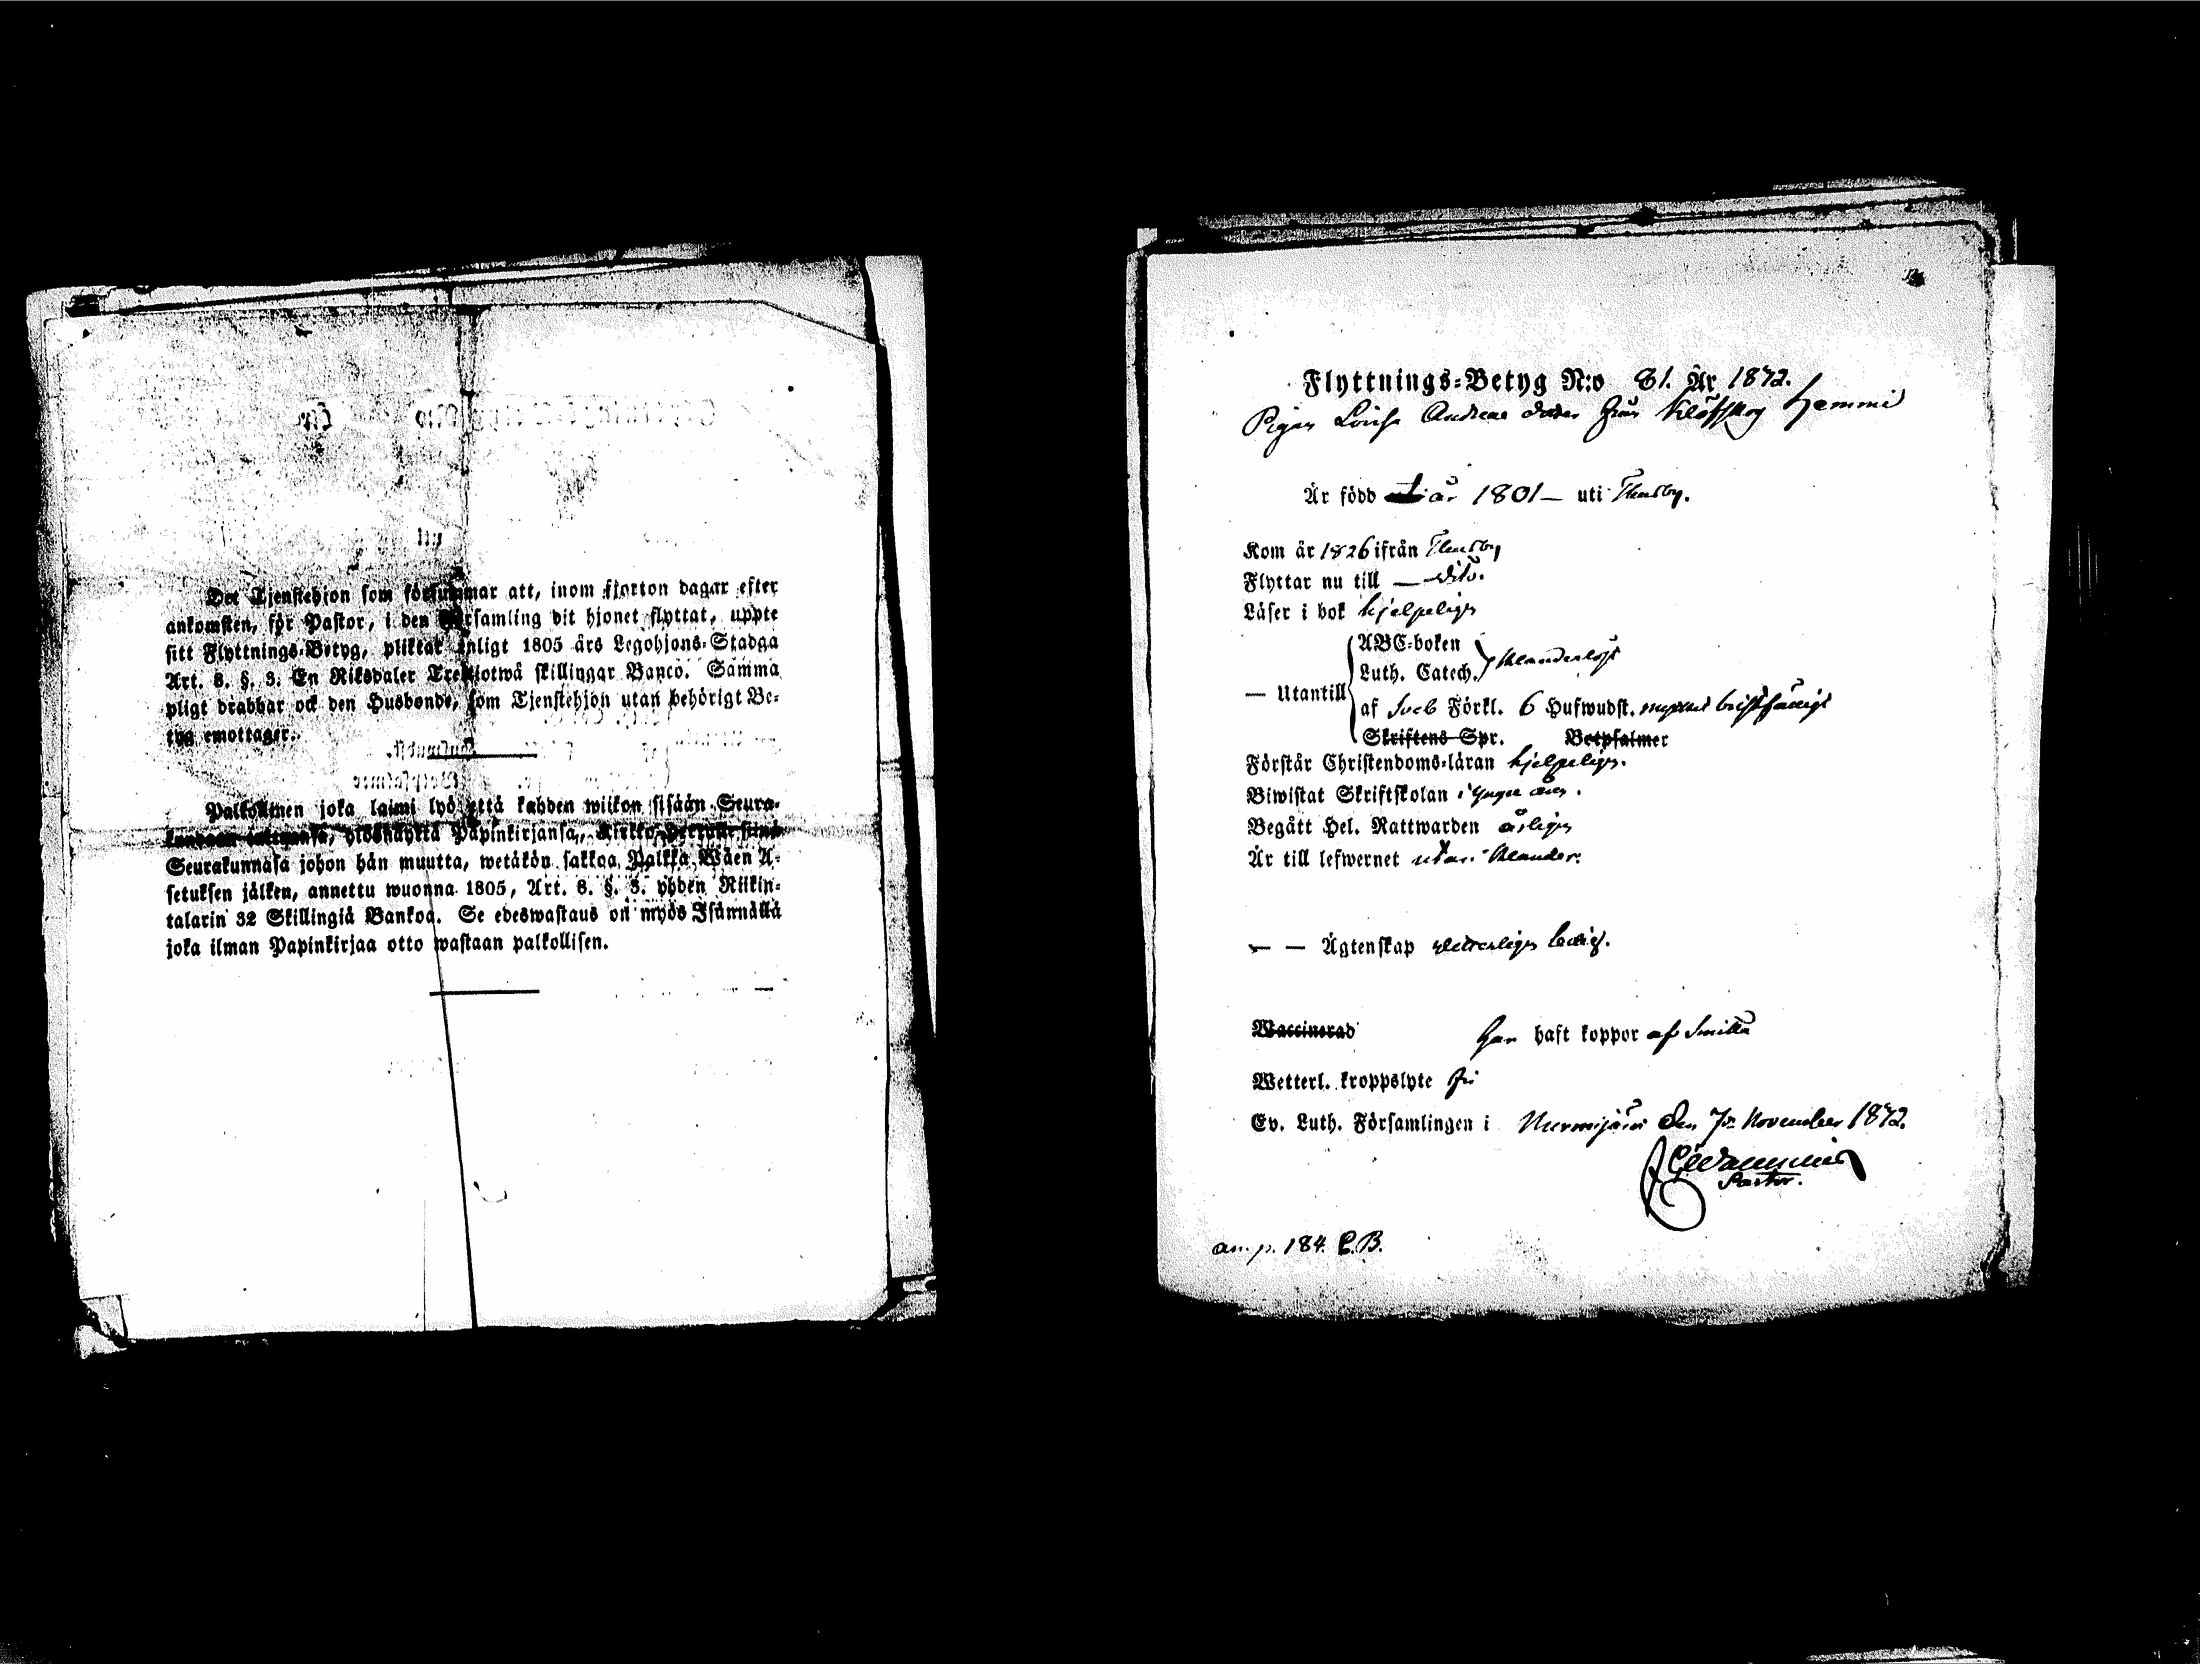 Det Tjenstehjon som försummar att, inom fjorton dagar efter
ankomsten, för Pastor, i den Församling dit hjonet flyttat, uppte
sitt Flyttnings-Betyg, pliktar enligt 1805 års Legohjons-Stadga
Art. 8. §. 3. En Riksdaler Trettiotwå skillingar Banco. Samma
pligt drabbar ock den Husbonde, som Tjenstehjon utan behörigt Be-
tyg emottager.
Palkollinen joka laimi lyö että kahden wiikon sisään Seura-
kuntaan tultuansa, ylösnäyttä Papinkirjansa, Kirkko-Herralle siinä
Seurakunnasa johon hän muutta, wetäkön sakkoa Palkka Wäen A-
setuksen jälken, annettu wuonna 1805, Art. 8. §. 3. yhden Riikin-
talarin 32 Skillingiä Bankoa. Se edeswastaus on myös Isännällä
joka ilman Papinkirjaa otto wastaan palkollisen.
Flyttnings-Betyg N:o 81. År 1872.
Pigan Lovisa från Klöfskog Hemmet
Är född år 1801 — uti Thusby.
Kom år 1826 ifrån Thusby
Flyttar nu till — dito.
Läser i bok hjelpeligen
ABC-boken
Luth. Catech.
— Utantill
af Sveb Förkl. 6 Hufwudst. mycket bristfälligt
Skriftens Spr. Botpsalmer
Förstår Christendoms-läran hjelpeligen.
Biwistat Skriftskolan i yngre åren.
Begått Hel. Nattwarden årligen
Är till lefwernet utan klander.
— — Ägtenskap veterligen ledig.
Vaccinerad har haft koppor af Smitta
Wetterl. kroppslyte fri
Ev. Luth. Församlingen i Nurmijärvi den 7de November 1872.
Pastor.
an. p. 184. C.B.